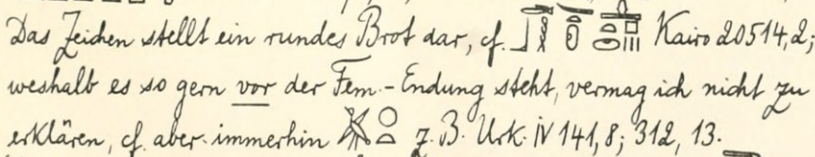 Das Zeichen stellt ein rundes Brot dar, cf. Kairo 20514,2;
weshalb es so gern vor der Fem.-Endung steht, vermag ich nicht zu
erklären, cf. aber immerhin z.B. Urk. IV 141,8; 312, 13.